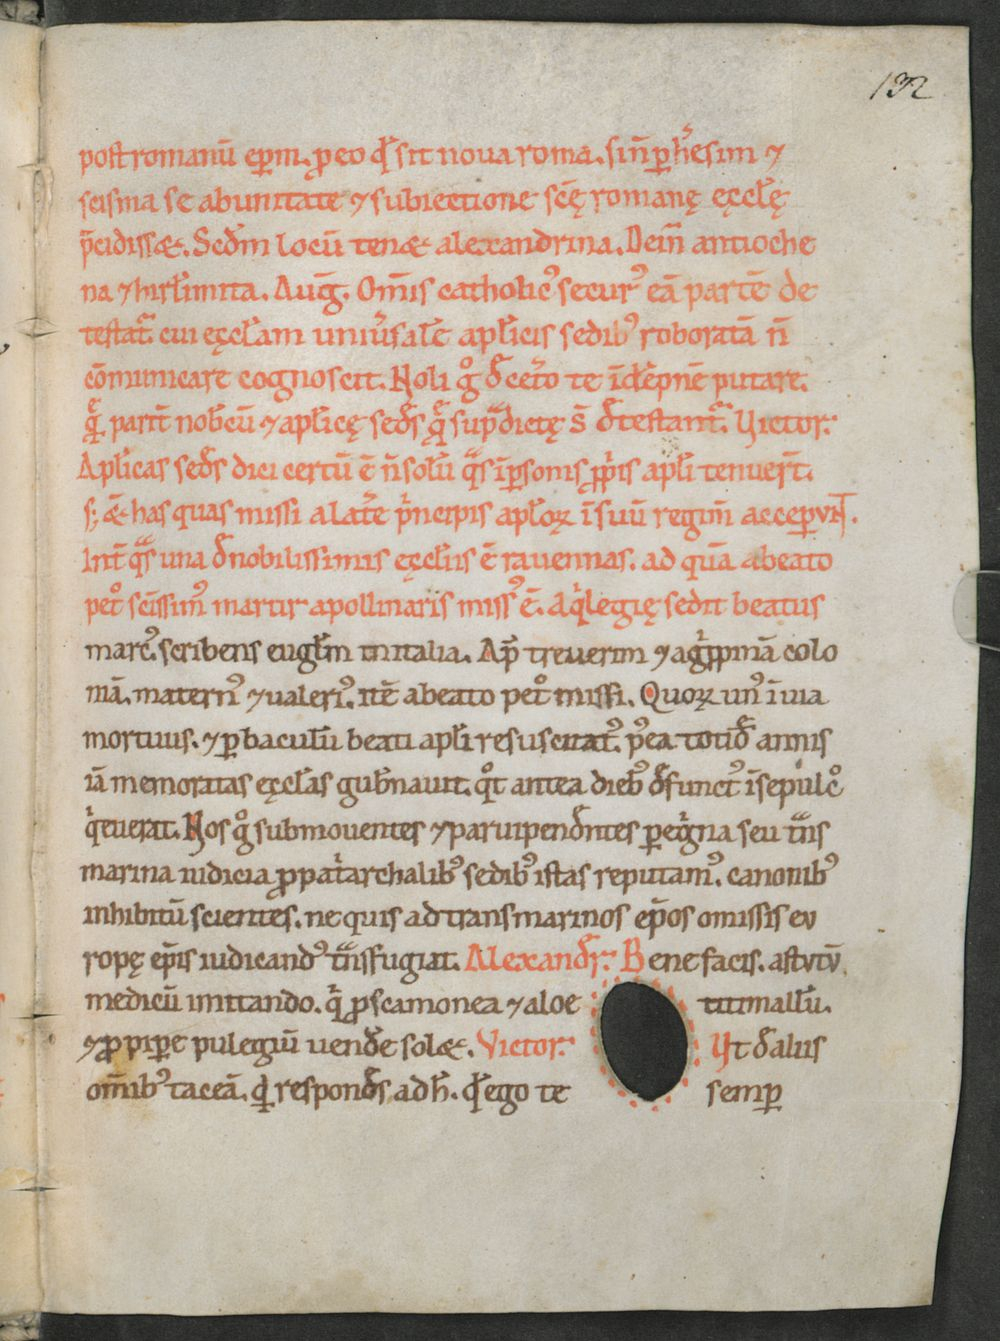 132
post romanū ep̄m. ꝑeo qď sit noua roma. sin̄ ꝑ hesim ⁊
scisma se ab unitate ⁊ subiectione scę̄ romanę ęcclę̄
p̄cidissæ. Scd̄m locū tenæ alexandrina. Dein̄ antioche
na ⁊ hisrl̄imita. Auḡ. Om̄is catholic᾽ secur᾽ eā partē de
testat᾽. cui ęccl̄am uniu᾽salē apl̄icis sedib᾽ roboratā n̄
cōmunicare cognoscit. Noli gͦ đcet᾽o te īdēpnē putare.
qͣ part̄ nob̄cū ⁊ apl̄icę sed̄s qͣ sup̄dictę s̄ đtestant᾽. Victor.
Apl̄icas sed̄s dici certū ē n̄ solū qͣs īꝑsonis ꝓpͥis apl̄i tenuer̄t.
s; æ has quas missi a lat᾽e pͥncipis apl̄oꝝ ī suū regim̄ acceperunt.
Int̄ qͣs una đ nobilissimis ęccl̄iis ē rauennas. ad quā a beato
petͦ sciss̄im᾽ martir apollinaris miss᾽ ē. Aqͥlegię sedit beatus
marc᾽. scribens eugl̄m in italia. Ap̄ treuerim ⁊ agͥppinā colo
niā. matern᾽ ⁊ ualeri᾽. itē a beato petͦ missi. Quoꝝ un᾽ ī uia
mortuus. ⁊ ꝑ baculū beati apl̄i resuscitat᾽. p᾽ea totiđ annis
iā memoratas ęccl̄as gub̄nauit. qͦt antea dieb᾽ đfunct᾽ ī sepulcͦ
qͥeuerat. Nos gͦ submouentes ⁊ paruipendentes ꝑegͥna seu tͣns
marina iudicia ꝓ patͥarchalib᾽ sedib᾽ istas reputam᾽. canonib᾽
inhibitū scientes. ne quis ad transmarinos ep̄os omissis eu
ropę ep̄is iudicand᾽ tͣnsfugiat. Alexand̄r. Bene facis. astutū
medicū imitando. qͥ ꝓ scamonea ⁊ aloe titimallū.
⁊ ꝓ pipe pulegiū uende solæ. Victor. Vt đ aliis
om̄ib᾽ taceā. qđ respond̄s ad h̄. qđ ego te semꝑ